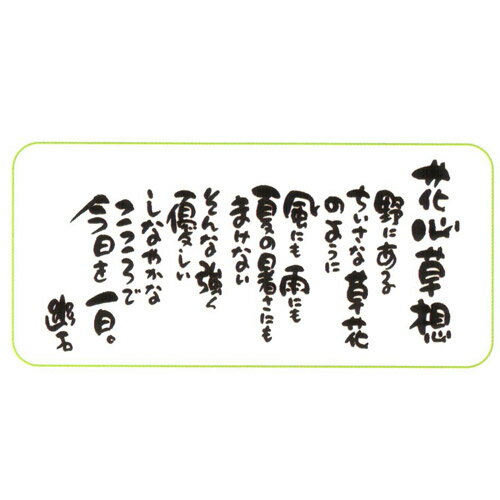 花心草想
野にある
ちいさな草花
のように
風にも雨にも
夏の暑さにも
まけない
そんな強く
優しい
しなやかな
こころで
今日を一日。